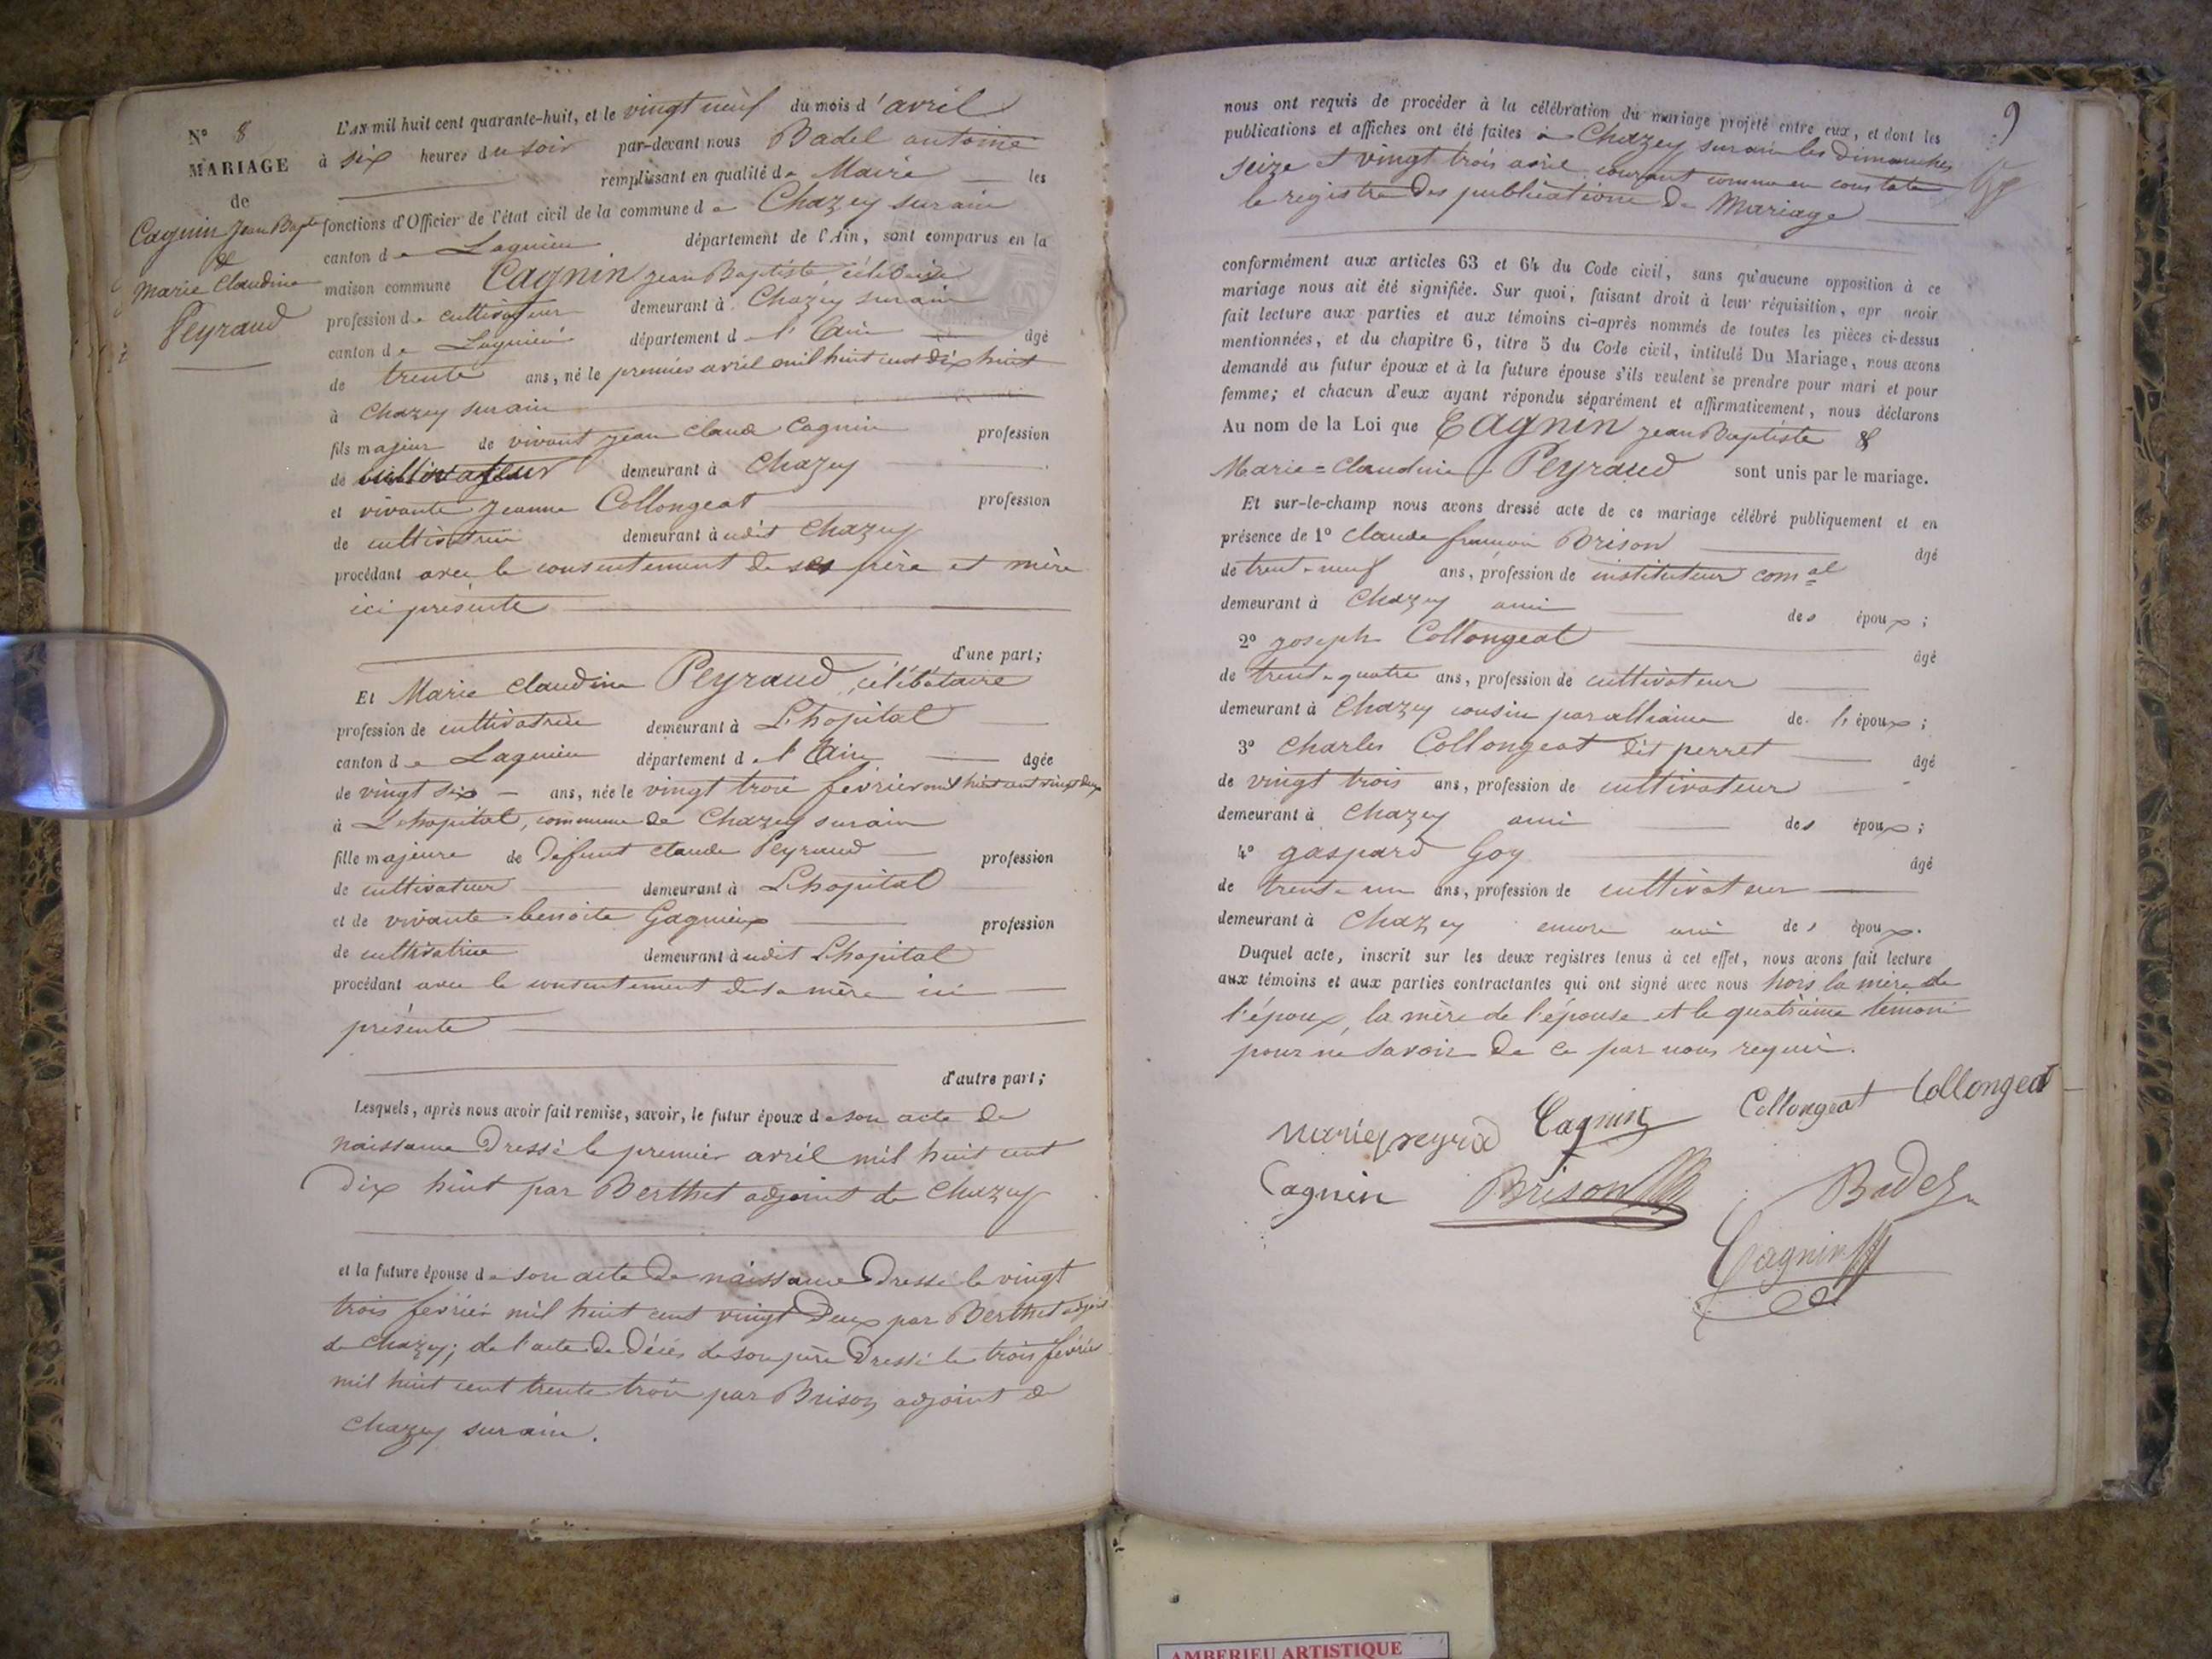 N° 8
MARIAGE
de
Cagnin Jean Bapte
&
Marie Claudine
Peyraud
L'AN mil huit cent quarante-huit, et le vingt neuf du mois d'avril
à six heures du soir par-devant nous Badel antoine
remplissant en qualité de Maire les
fonctions d'Officier de l'état civil de la commune de Chazey sur ain
canton de Lagnieu département de l'Ain, sont comparus en la
maison commune Cagnin jean Baptiste célibaire
profession de cultivateur demeurant à Chazey sur ain
canton de Lagnieu département d l'Ain âgé
de trente ans, né le premier avril mil huit cent dix huit
à Chazey sur ain
fils majeur de vivant jean claude Cagnin profession
de cultivateur demeurant à Chazey
et vivante jeanne Collongeat profession
de cultivatrice demeurant à udit Chazey
procédant avec le consentement de ses père et mère
ici présente
d'une part;
Et Marie claudine Peyraud, célibataire
profession de cultivatrice demeurant à L'hopital
canton de Lagnieu département d l'Ain âgée
de vingt six ans, née le vingt trois février mil huit cent vingt deux
à L'hopital, commune de Chazey sur ain
fille majeure de défunt claude Peyraud profession
de cultivateur demeurant à L'hopital
et de vivante benoite Gagnieux profession
de cultivatrice demeurant à udit Lhopital
procédant avec le consentement de sa mère ici
présente
d'autre part;
Lesquels, après nous avoir fait remise, savoir, le futur époux de son acte de
naissance dressé le premier avril mil huit cent
dix huit par Berthet adjoint de Chazey
et la future épouse de son acte de naissance dressé le vingt
trois février mil huit cent vingt deux par Berthet adjoint
de Chazey; de l'acte de décès de son père dressé le trois février
mil huit cent trente trois par Brison adjoint de
Chazey sur ain.
9
nous ont requis de procéder à la célébration du mariage projeté entre eux, et dont les
publications et affiches ont été faites à Chazey sur ain les dimanches
seize et vingt trois avril courant comme en constate
le registre des publications de Mariage
conformément aux articles 63 et 64 du Code civil, sans qu'aucune opposition à ce
mariage nous ait été signifiée. Sur quoi, faisant droit à leur réquisition, apr avoir
fait lecture aux parties et aux témoins ci-après nommés de toutes les pièces ci-dessus
mentionnées, et du chapitre 6, titre 5 du Code civil, intitulé Du Mariage, nous avons
demandé au futur époux et à la future épouse s'ils veulent se prendre pour mari et pour
femme; et chacun d'eux ayant répondu séparément et affirmativement, nous déclarons
Au nom de la Loi que Cagnin jean Baptiste &
Marie=Claudine Peyraud sont unis par le mariage.
Et sur-le-champ nous avons dressé acte de ce mariage célébré publiquement et en
présence de 1° Claude françois Brison âgé
de trente-neuf ans, profession de instituteur comal
demeurant à Chazey ami des époux;
2° joseph Collongeat âgé
de trente quatre ans, profession de cultivateur
demeurant à Chazey cousin par alliance de l'époux;
3° Charles Collongeat dit perret âgé
de vingt trois ans, profession de cultivateur
demeurant à Chazey ami des époux;
4° gaspard Goy âgé
de trente un ans, profession de cultivateur
demeurant à Chazey encore ami des époux.
Duquel acte, inscrit sur les deux registres tenus à cet effet, nous avons fait lecture
aux témoins et aux parties contractantes qui ont signé avec nous hors la mère de
l'époux, la mère de l'épouse et le quatrième témoin
pour ne savoir de ce par nous requis.
Cagnin Collongeat Collongeat
Cagnin Brison Badel
Cagnin
AMBERIEU ARTISTIQUE